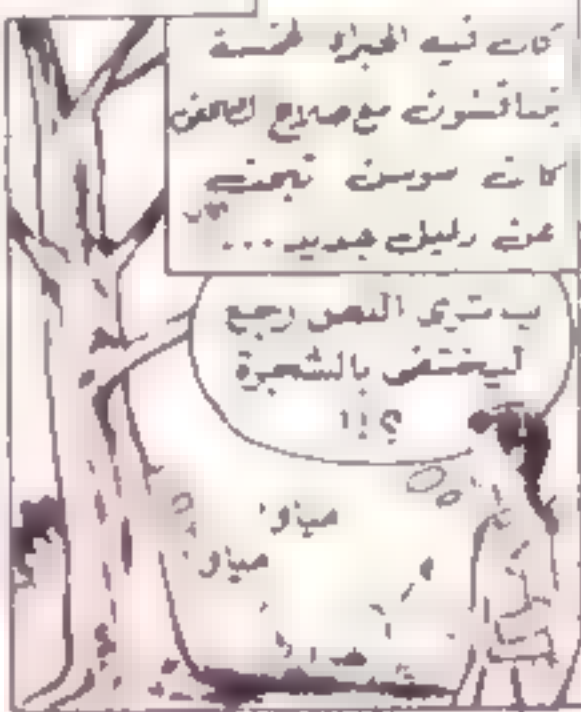 كان فيه الخبراء الخمسة
يتناقشون مع صلاح
كانت سوسن تبحث
عن دليل جديد...
يا ترى اللص رجع
ليختفى بالشجرة
؟!!
مياو
مياو